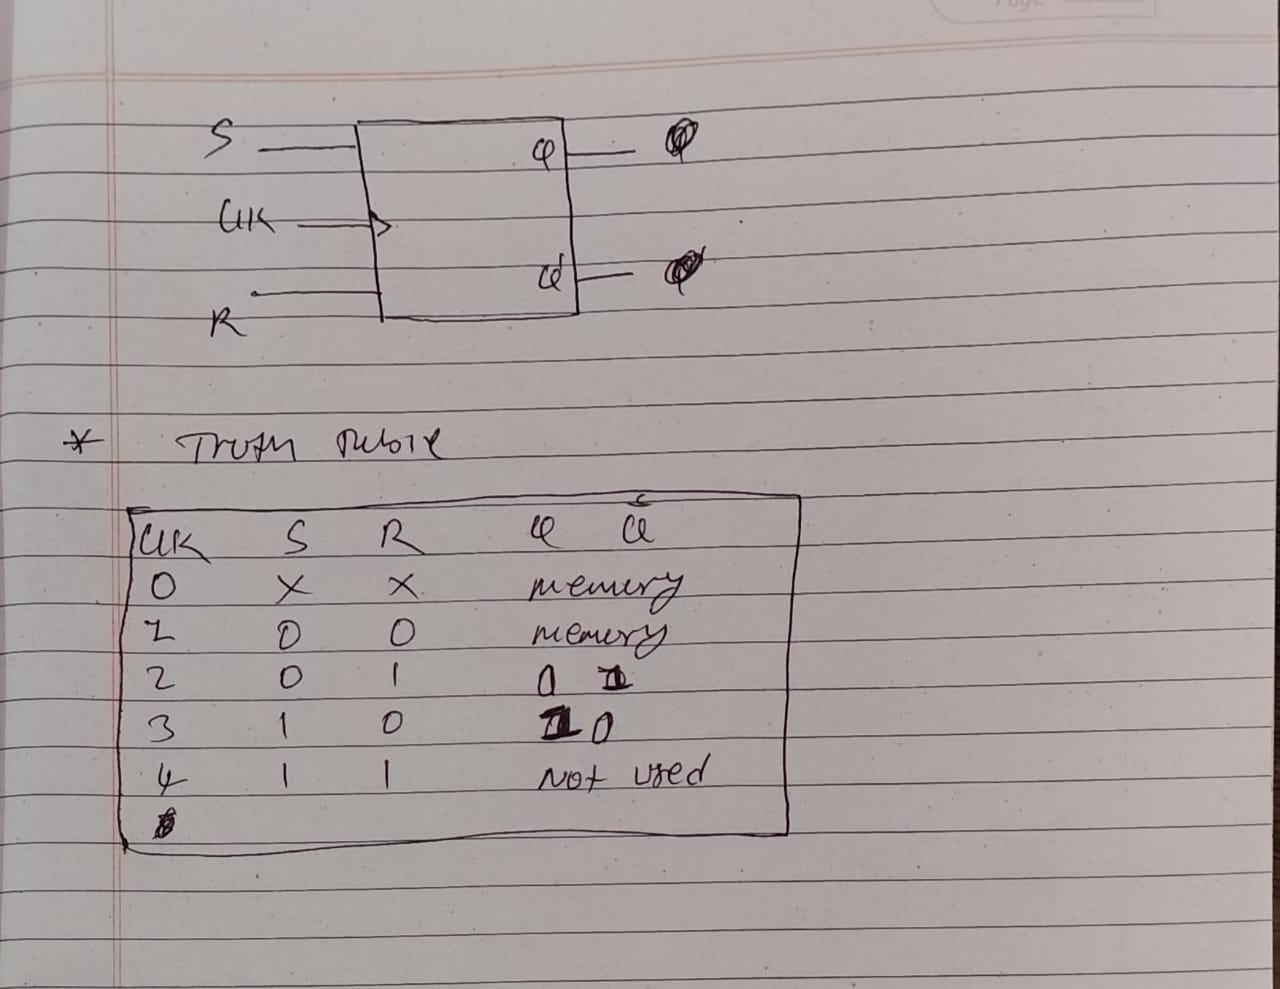 Page
S
Q
CLK
Q'
R
* Truth Table
CLK S R Q Q̄
0 X X memory
1 0 0 memory
2 0 1 0 1
3 1 0 1 0
4 1 1 Not used